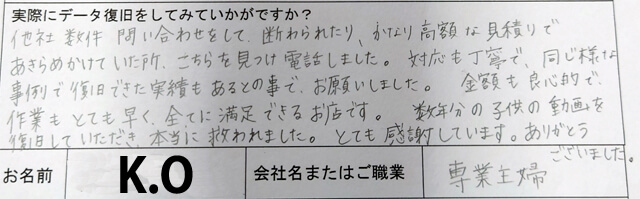 実際にデータ復旧をしてみていかがですか？
他社数件 問い合わせをして、断わられたり、かなり高額な見積りで
あきらめかけていた所、こちらを見つけ電話しました。対応も丁寧で、同じ様な
事例で復旧できた実績もあるとの事で、お願いしました。金額も良心的で、
作業もとても早く、全てに満足できるお店です。数年分の子供の動画を
復旧していただき、本当に救われました。とても感謝しています。ありがとう
ございました。
お名前 K.O 会社名またはご職業 専業主婦